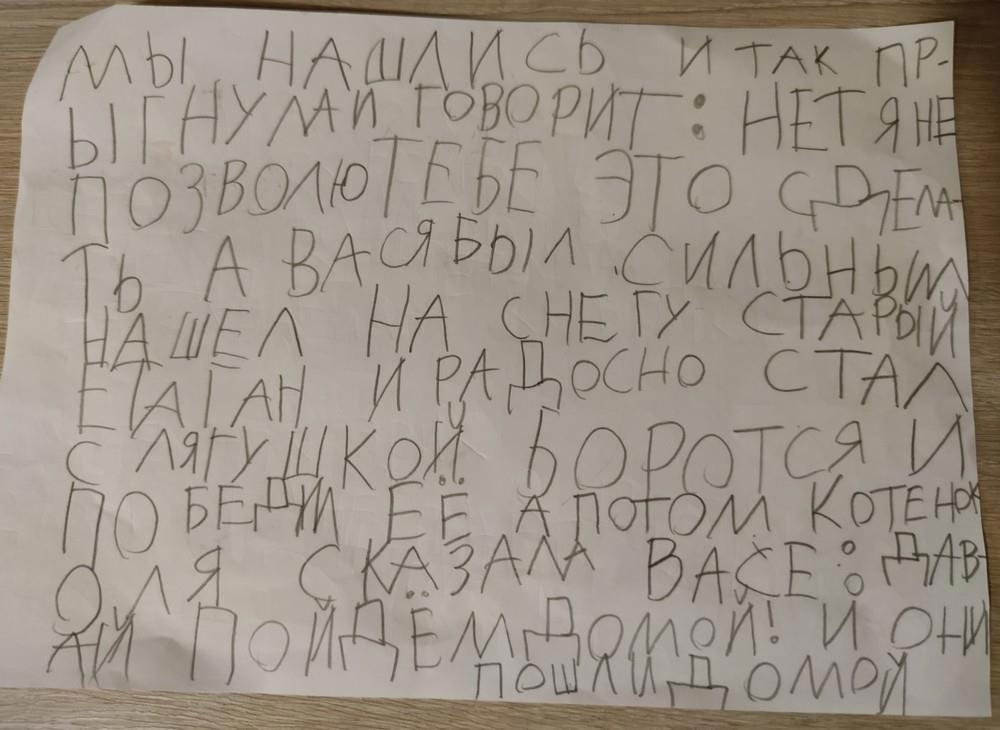 МЫ НАШЛИСЬ И ТАК ПР-
ЫГНУЛАИ ГОВОРИТ: НЕТ Я НЕ
ПОЗВОЛЮ ТЕБЕ ЭТО СДЕЛА-
ТЬ А ВАСЯ БЫЛ СИЛЬНЫМ
НАШЕЛ НА СНЕГУ СТАРЫЙ
ЕТАГАН И РАДОСНО СТАЛ
С ЛЯГУШКОЙ БОРОТСЯ И
ПОБЕДИЛ ЕЁ А ПОТОМ КОТЕНОК
ОЛЯ СКАЗАЛА ВАСЕ: ДАВ-
АЙ ПОЙДЁМ ДОМОЙ! И ОНИ
ПОШЛИ ДОМОЙ